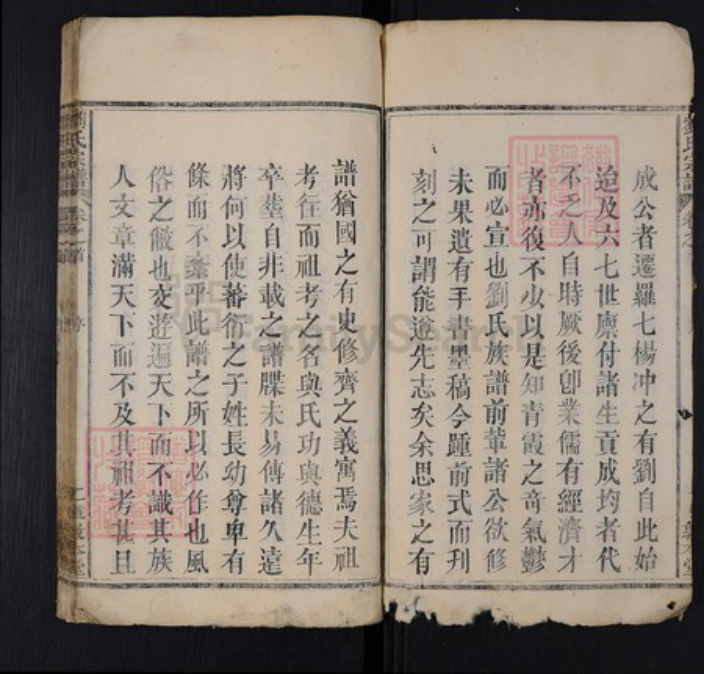 成公者遷羅七楊冲之有劉自此始
迨及六七世廪付諸生貢成均者代
不乏人自時厥後卽業儒有經濟才
者亦復不少以是知青霞之奇氣鬱
而必宣也劉氏族譜前輩諸公欲修
未果遺有手書墨稿今踵前式而刋
刻之可謂能遵先志矣余思家之有
譜猶國之有史修齊之義寓焉夫祖
考徃而祖考之名與氏功與德生年
卒塟自非載之譜牒未易傳諸久遠
將何以使蕃衍之子姓長幼尊卑有
條而不紊乎此譜之所以必作也風
俗之敝也交遊遍天下而不識其族
人文章滿天下而不及其祖考甚且
劉氏宗譜
卷之
FamilySearch